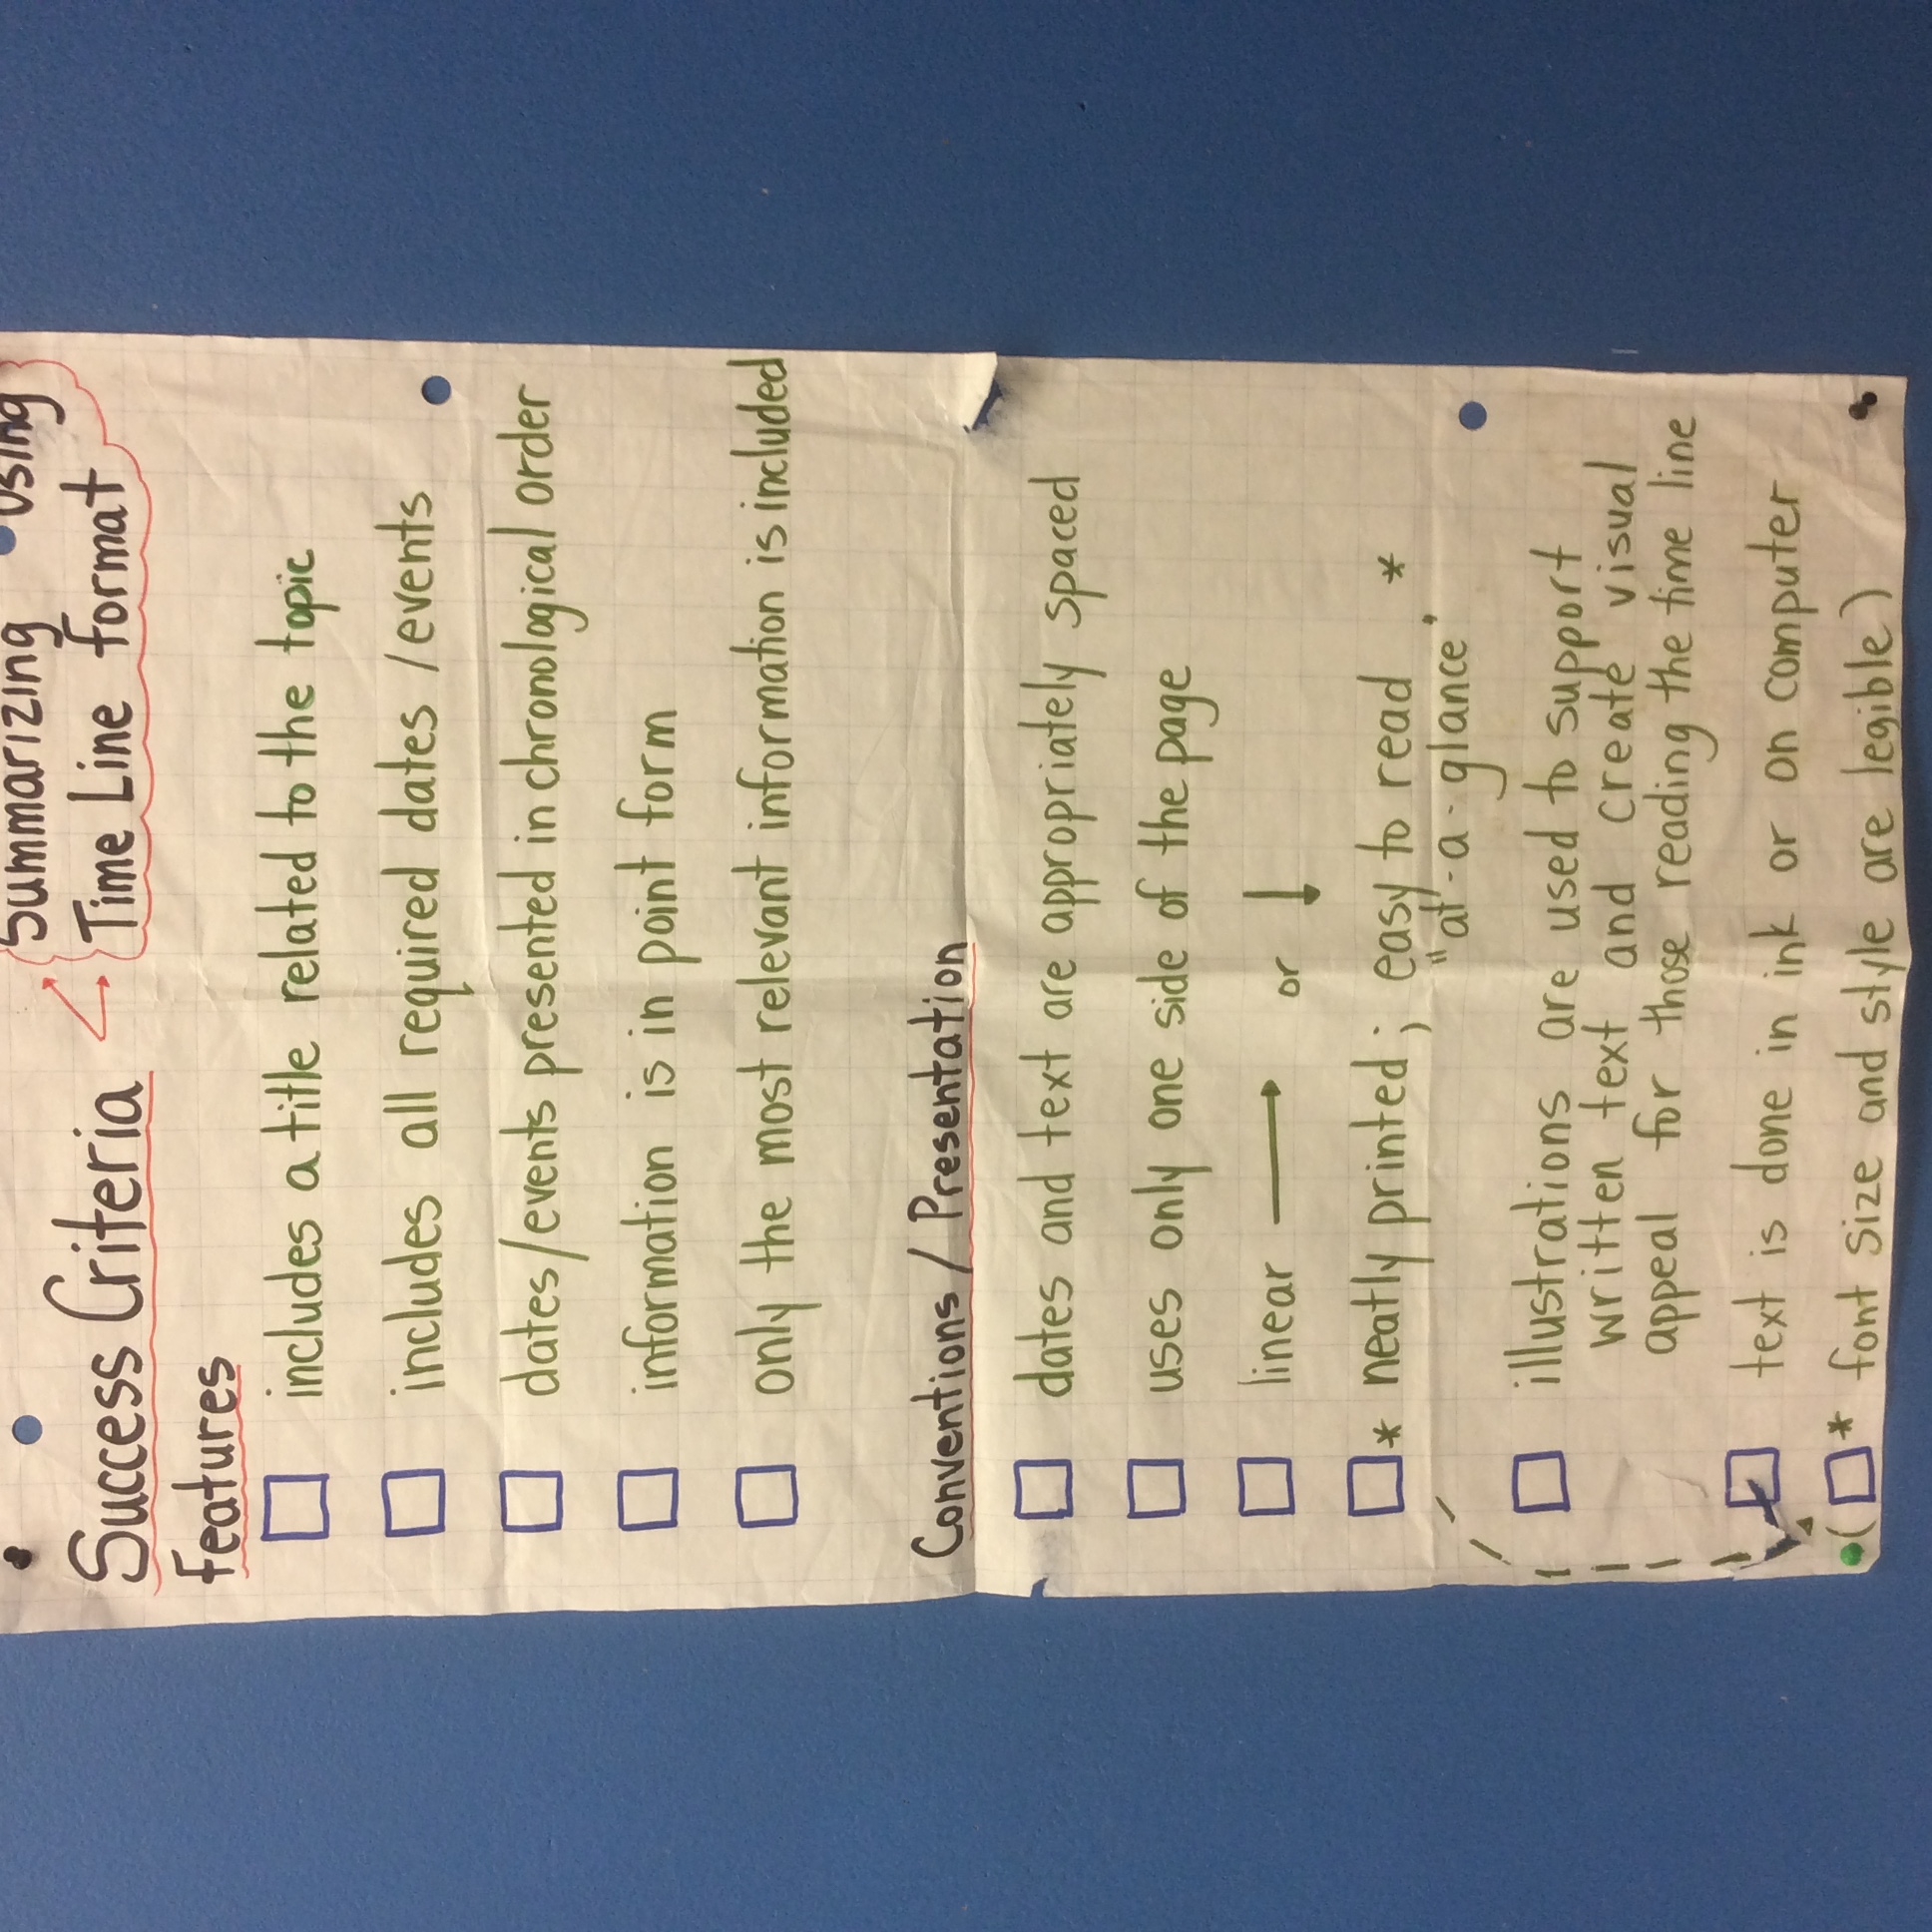 Summarizing using
Success Criteria Time Line format
features
includes a title related to the topic
includes all required dates / events
dates/events presented in chronological order
information is in point form
only the most relevant information is included
Conventions / Presentation
dates and text are appropriately spaced
uses only one side of the page
linear → or ↓
* neatly printed; easy to read *
"at-a-glance"
illustrations are used to support
written text and create visual
appeal for those reading the time line
text is done in ink or on computer
( * font size and style are legible)